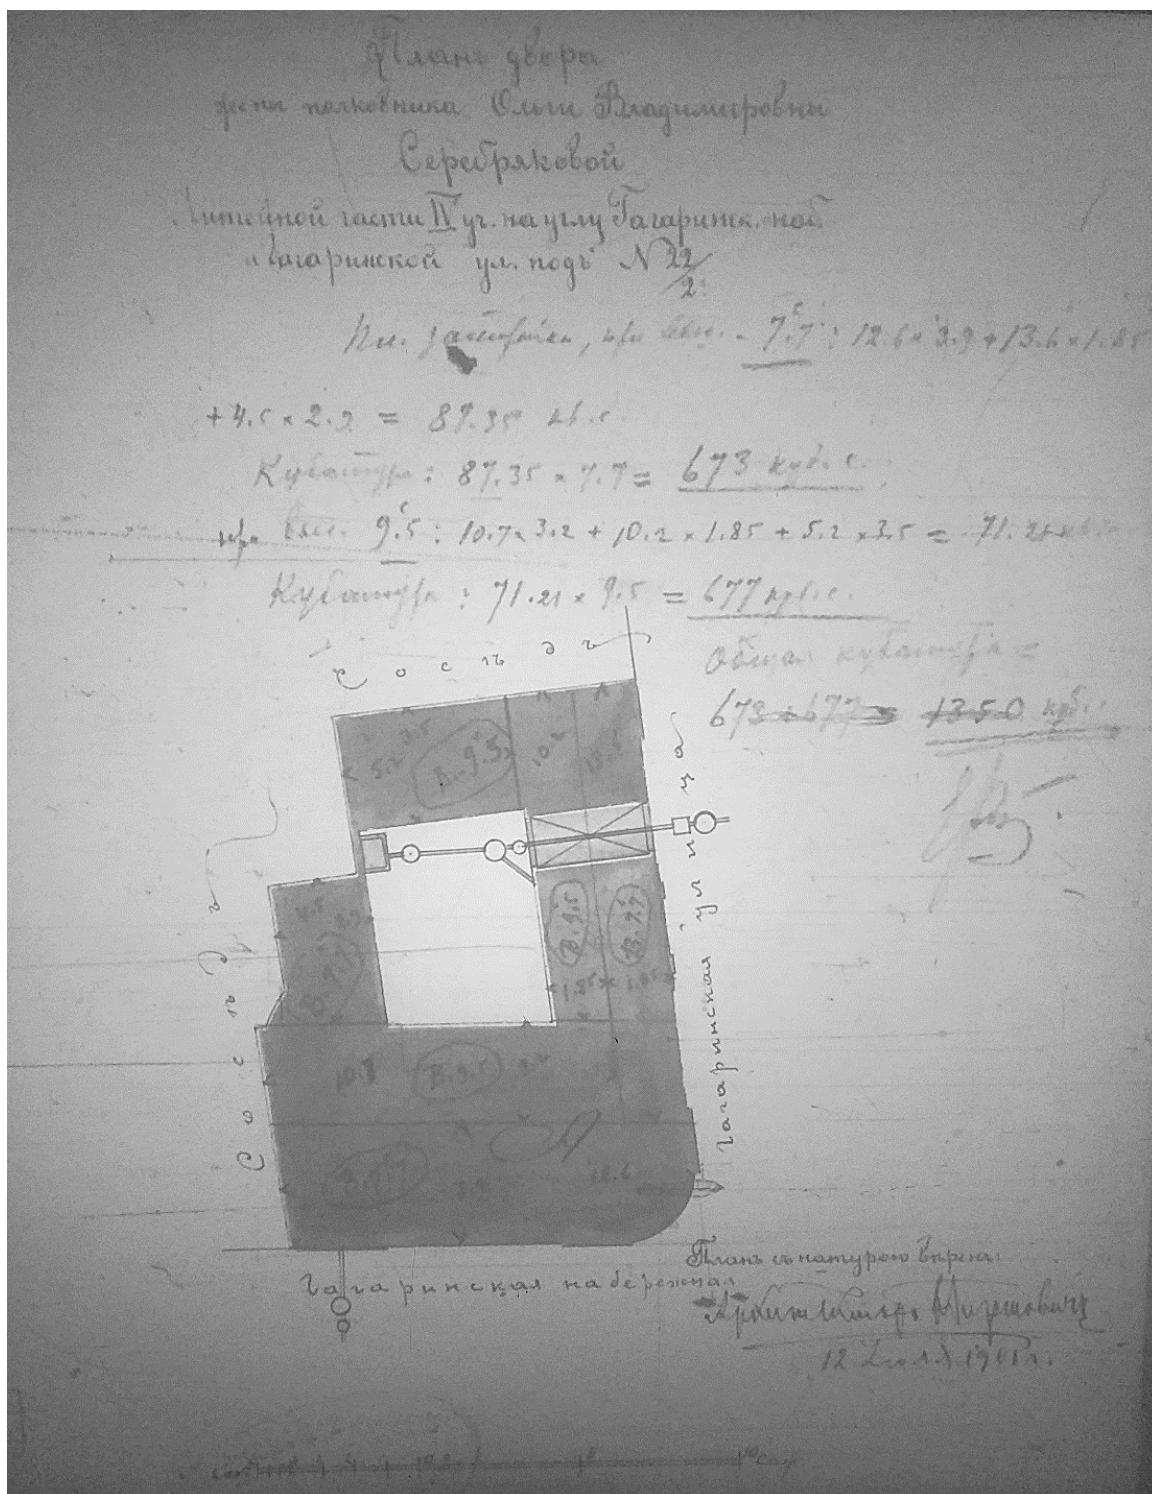 Планъ двора
жены полковника Ольги Владимировны
Серебряковой
Литейной части II уч. на углу Гагаринск. наб.
и Гагаринской ул. подъ N 22/2.
Пл. застройки, при выс. - 7.7с: 12.6 × 3.9 + 13.6 × 1.85
+ 4.5 × 2.9 = 87.35 кв.с.
Кубатура: 87.35 × 7.7 = 673 куб.с.
при выс. 9.5с: 10.7 × 3.2 + 10.2 × 1.85 + 5.2 × 3.5 = 71.21 кв.
Кубатура: 71.21 × 9.5 = 677 куб.с.
Общая кубатура =
673 + 677 = 1350 куб.
Сосѣдъ
5.2 3.5 В. 9.5 10.2 13.5
Сосѣдъ
Гагаринская улица
4.5
В. 7.7
В. 9.5
В. 7.7
1.85 1.85
10.7 В. 9.5
В. 7.7 3.9 12.6
Гагаринская набережная
Планъ съ натурою вѣренъ:
Архитекторъ
12 1905г.